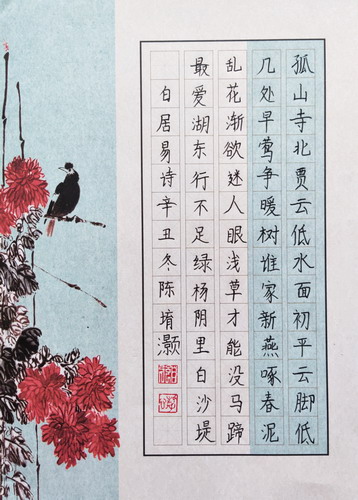 孤山寺北贾云低水面初平云脚低
几处早莺争暖树谁家新燕啄春泥
乱花渐欲迷人眼浅草才能没马蹄
最爱湖东行不足绿杨阴里白沙堤
白居易诗辛丑冬陈堉灏